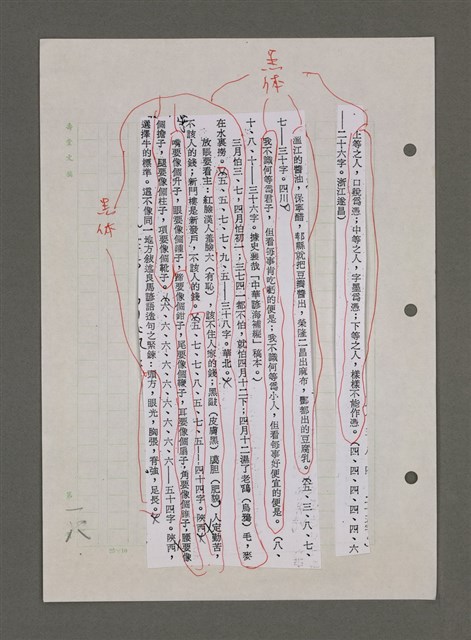 黑体
黑体
上等之人，口說為憑；中等之人，字墨為憑；下等之人，樣樣不能作憑。（四、四、四、四、四、六
——二十六字。浙江遂昌）
溫江的醬油，保寧醋，郫縣就把豆瓣醬出，榮隆二昌出麻布，酆都出的豆腐乳。（五、三、八、七、
七——三十字。四川）
我不識何等為君子，但看每事肯吃虧的便是；我不識何等為小人，但看每事好便宜的便是。（八、
十、八、十——三十六字。據史襄哉「中華諺海補編」稿本。）
三月怕三、七，四月怕初一；三七四一都不怕，就怕四月十二下；四月十二濕了老鴰（烏鴉）毛，麥
在水裏撈。（五、五、七、七、九、五——三十八字。華北。）
放賬要看主：紅臉漢人羞臉大（有恥），該不住人家的錢；黑
（皮膚黑）
（肥
）人定勤苦，
不該人的錢；新門樓是新發戶，不該人的錢。（五、七、七、八、五、七、五——四十四字。陝西）
嘴要像個升子，眼要像個
子，
要像個
子，尾要像個
子，耳要像個扇子，角要像個
子；腰要像
個擔子，腿要像個柱子，項要像個
子。（六、六、六、六、六、六、六、六、六——五十四字。陝西，
選擇牛的標準。這不像同一地方敘述良馬諺語造句之緊鍊：頭方，眼光，胸張，脊強，足長。）